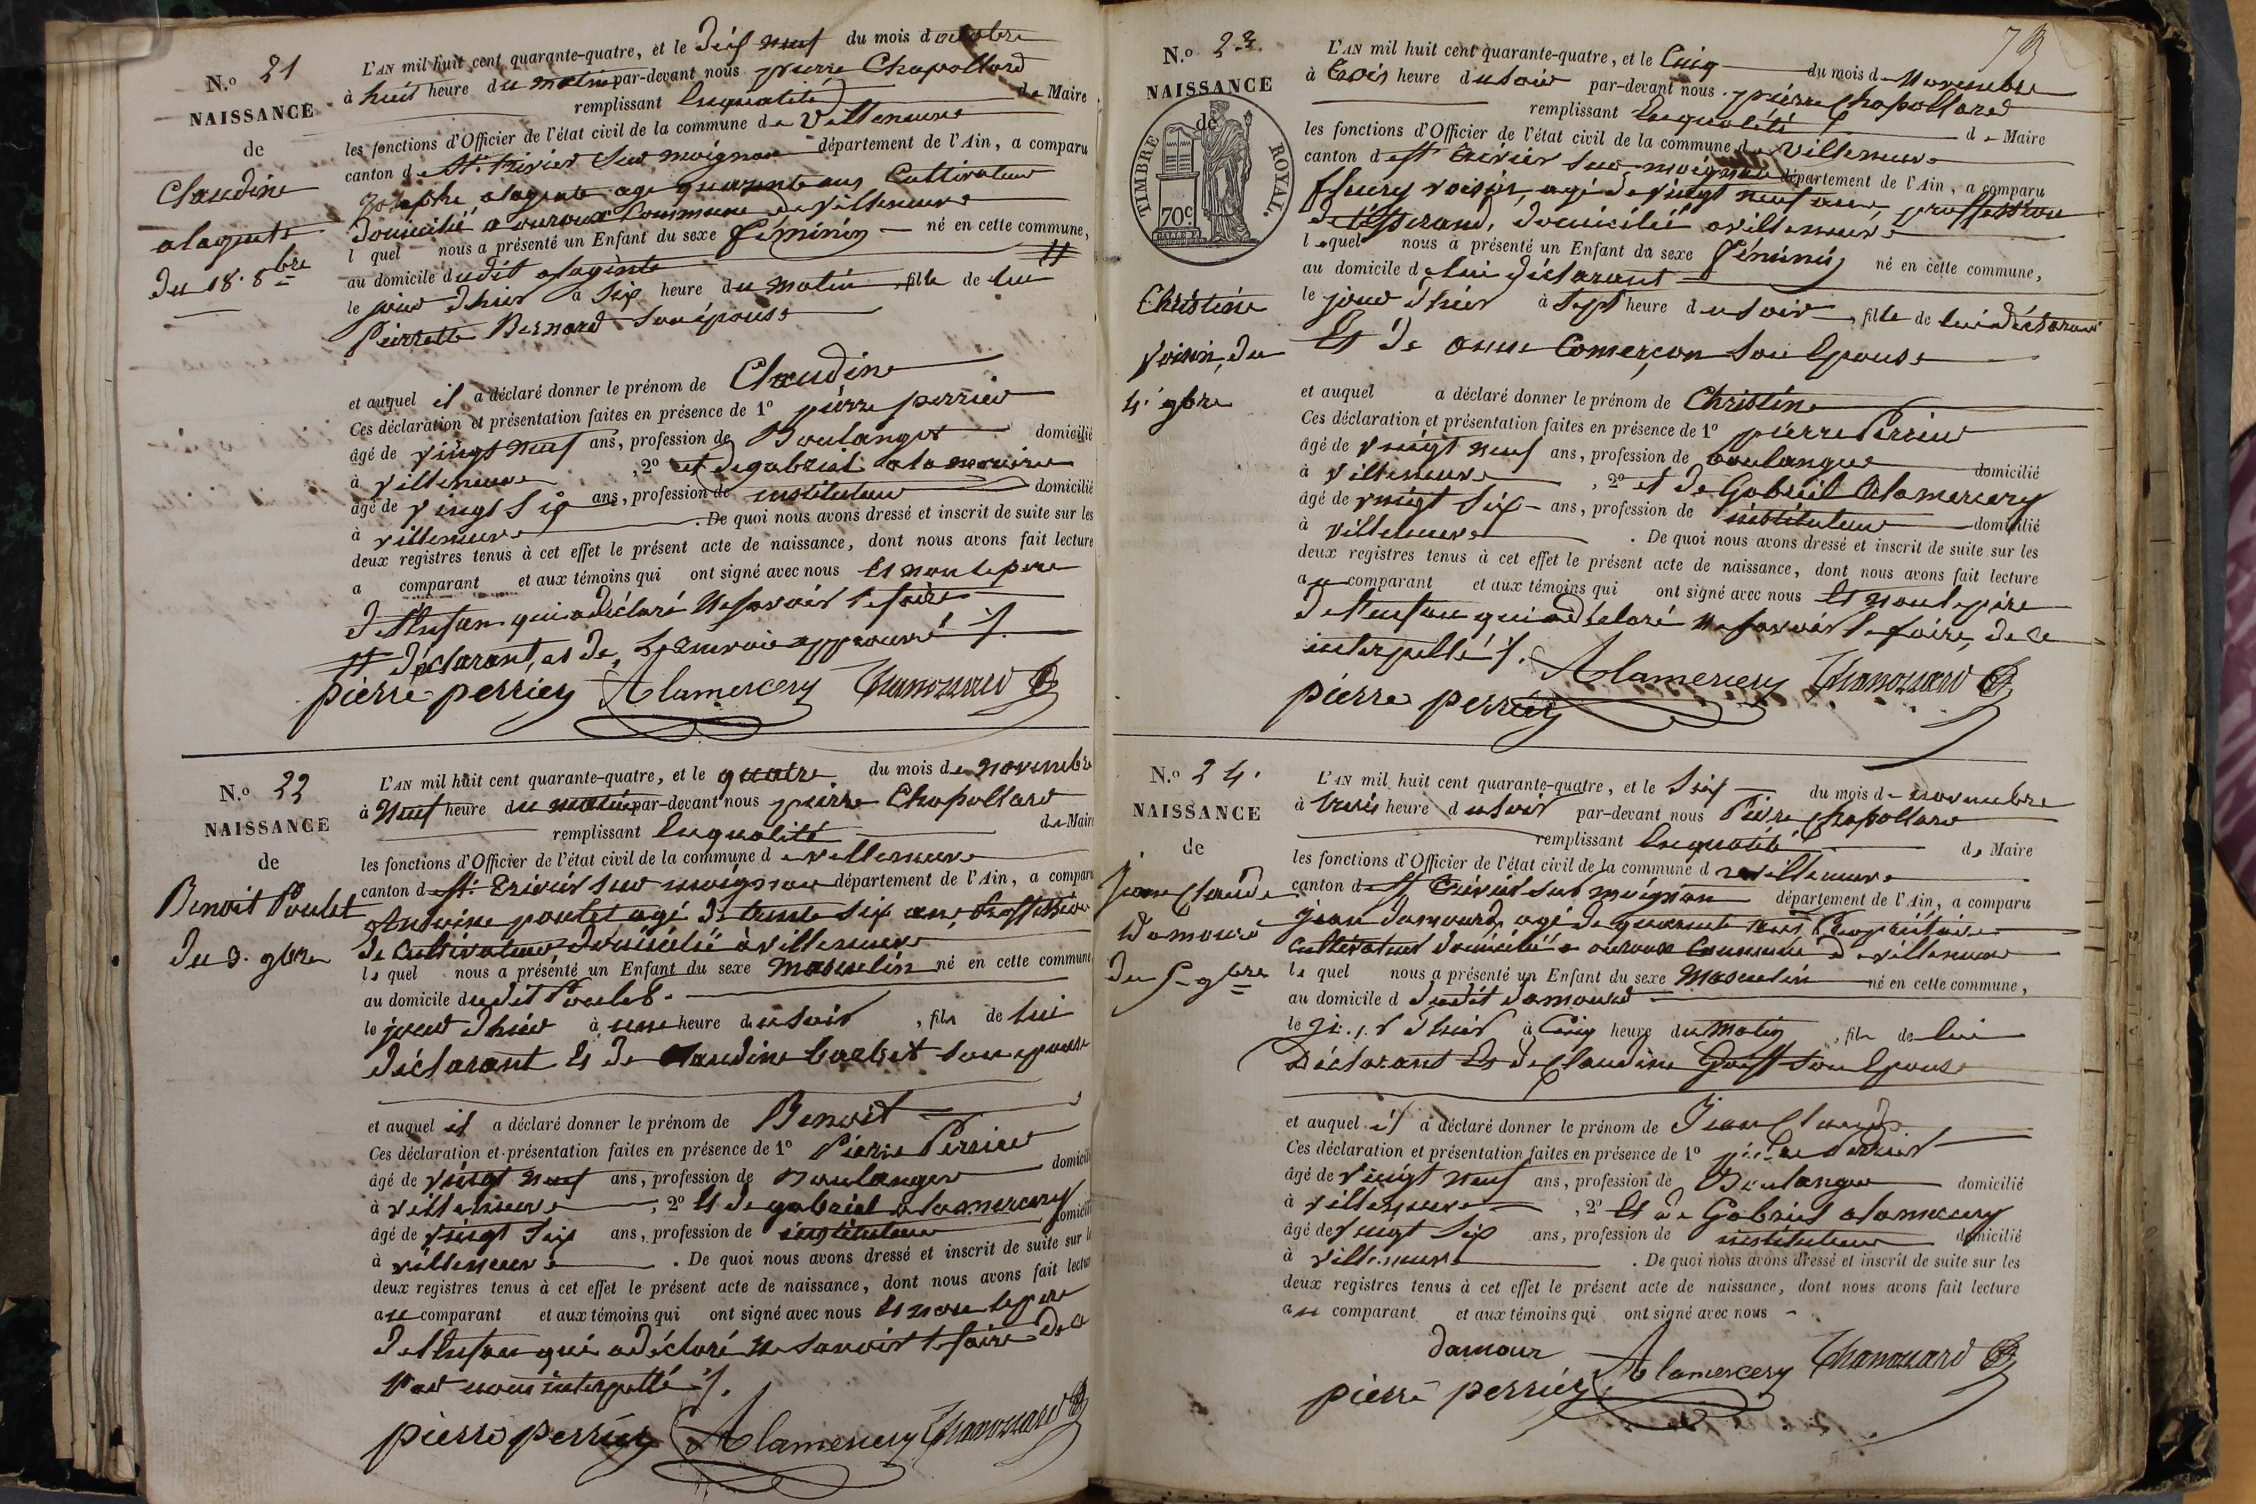 N.o 21
NAISSANCE
de
Claudine
alagente
du 18. 8bre
L'AN mil huit cent quarante-quatre, et le dix neuf du mois d octobre
à huit heure du matin par-devant nous pierre Chapollard
remplissant en qualité de Maire
les fonctions d'Officier de l'état civil de la commune de Villeneuve
canton de St. trivier Sur moignan département de l'Ain, a comparu
joseph alagente age quarante ans Cultivateur
domicilié a ouroux Commune de villeneuve
l quel nous a présenté un Enfant du sexe féminin né en cette commune,
au domicile dudit alagente
le jour d'hier à Six heure du matin fille de lui
Pierrette Bernard Son épouse
et auquel il a déclaré donner le prénom de Claudine
Ces déclaration et présentation faites en présence de 1o pierre perrier
âgé de vingt neuf ans, profession de Boulanger domicilié
à villeneuve, 2o et de gabriel
âgé de vingt Six ans, profession de instituteur domicilié
à villeneuve. De quoi nous avons dressé et inscrit de suite sur les
deux registres tenus à cet effet le présent acte de naissance, dont nous avons fait lecture
a comparant et aux témoins qui ont signé avec nous Et non le pere
de l'enfan qui a déclaré ne savoir le faire
déclarant, et de, renvoie approuvé
pierre perrier Alamercery
N.o 22
NAISSANCE
de
Benoit Poulet
du 3. 9bre
L'AN mil huit cent quarante-quatre, et le quatre du mois de novembre
à Neuf heure du matin par-devant nous pierre Chapollard
remplissant En qualité de Maire
les fonctions d'Officier de l'état civil de la commune de villeneuve
canton de St. Trivier sur moignan département de l'Ain, a comparu
Antoine poulet agé de trente six ans proffession
de Cultivateur domicilié à villeneuve
le quel nous a présenté un Enfant du sexe masculin né en cette commune
au domicile dudit Poulet.
le jour d'hier à une heure du soir, fils de lui
déclarant Et de Claudine son epouse
et auquel il a déclaré donner le prénom de Benoit
Ces déclaration et présentation faites en présence de 1o Pierre Perrier
âgé de vingt neuf ans, profession de Boulanger domicilié
à villeneuve, 2o Et de gabriel alamercery
âgé de vingt Six ans, profession de instituteur domicilié
à villeneuve. De quoi nous avons dressé et inscrit de suite sur les
deux registres tenus à cet effet le présent acte de naissance, dont nous avons fait lecture
au comparant et aux témoins qui ont signé avec nous Et non le pere
de l'enfan qui a déclaré ne savoir le faire de ce
par nous interpellé
pierre perrier Alamercery
N.o 23.
NAISSANCE
de
TIMBRE ROYAL.
70c
Christine
Voisin, du
4. 9bre
L'AN mil huit cent quarante-quatre, et le Cinq du mois de Novembre
à trois heure du soir par-devant nous pierre Chapollard
remplissant En qualité de Maire
les fonctions d'Officier de l'état civil de la commune de Villeneuve
canton de St trivier sur moignan département de l'Ain, a comparu
fleury voisin, agé de vingt neuf ans, proffession
de tisserand, domicilié a villeneuve
lequel nous a présenté un Enfant du sexe féminin né en cette commune,
au domicile de lui déclarant
le jour d'hier à Sept heure du soir, fille de lui déclarant
Et de anne Comerçon son Epouse
et auquel a déclaré donner le prénom de Christine
Ces déclaration et présentation faites en présence de 1o pierre Perrier
âgé de vingt neuf ans, profession de boulanger domicilié
à villeneuve, 2o et de Gabriel Alamercery
âgé de vingt Six ans, profession de instituteur domicilié
à villeneuve. De quoi nous avons dressé et inscrit de suite sur les
deux registres tenus à cet effet le présent acte de naissance, dont nous avons fait lecture
au comparant et aux témoins qui ont signé avec nous Et non le père
de l'enfan qui a déclaré ne savoir le faire, de ce
interpellé
Alamercery
pierre perrier
N.o 24.
NAISSANCE
de
jean Claude
Damour
du 5 9bre
L'AN mil huit cent quarante-quatre, et le Six du mois de novembre
à trois heure du soir par-devant nous Pierre Chapollard
remplissant En qualité de Maire
les fonctions d'Officier de l'état civil de la commune de villeneuve
canton de St trivier sur moignan département de l'Ain, a comparu
jean damour, agé de quarante ans Propriétaire
cultivateur domicilié a ouroux Commune de villeneuve
le quel nous a présenté un Enfant du sexe Masculin né en cette commune,
au domicile d dudit damour
le jour d'hier à Cinq heure du Matin, fils de lui
Déclarant Et de Claudine son Epouse
et auquel il a déclaré donner le prénom de Jean Claude
Ces déclaration et présentation faites en présence de 1o pierre perrier
âgé de vingt neuf ans, profession de Boulanger domicilié
à villeneuve, 2o Et de Gabriel alamercery
âgé de vingt Six ans, profession de instituteur domicilié
à villeneuve. De quoi nous avons dressé et inscrit de suite sur les
deux registres tenus à cet effet le présent acte de naissance, dont nous avons fait lecture
au comparant et aux témoins qui ont signé avec nous
damour Alamercery
pierre perrier